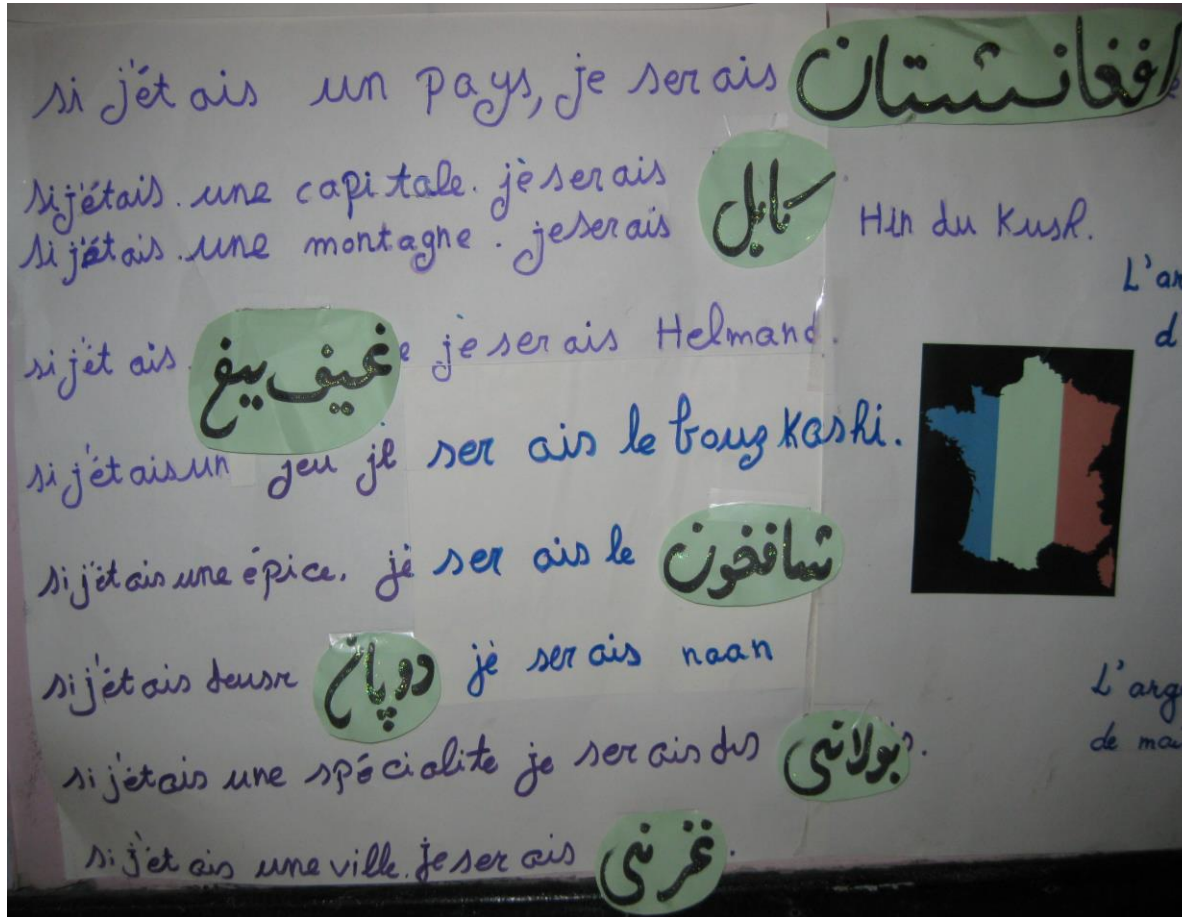 si j'étais un pays, je serais افغانستان
si j'étais une capitale. je serais کابل
si j'étais une montagne. je serais Hindu Kush.
L'ar
si j'étais غیف ییغ e je serais Helmand.
d
si j'étais un jeu je serais le bouzkashi.
si j'étais une épice. je serais le شافغون
si j'étais deusr دو پان je serais naan
L'arg
si j'étais une spécialite je serais des بولانی s.
de mau
si j'étais une ville. je serais غزنی.